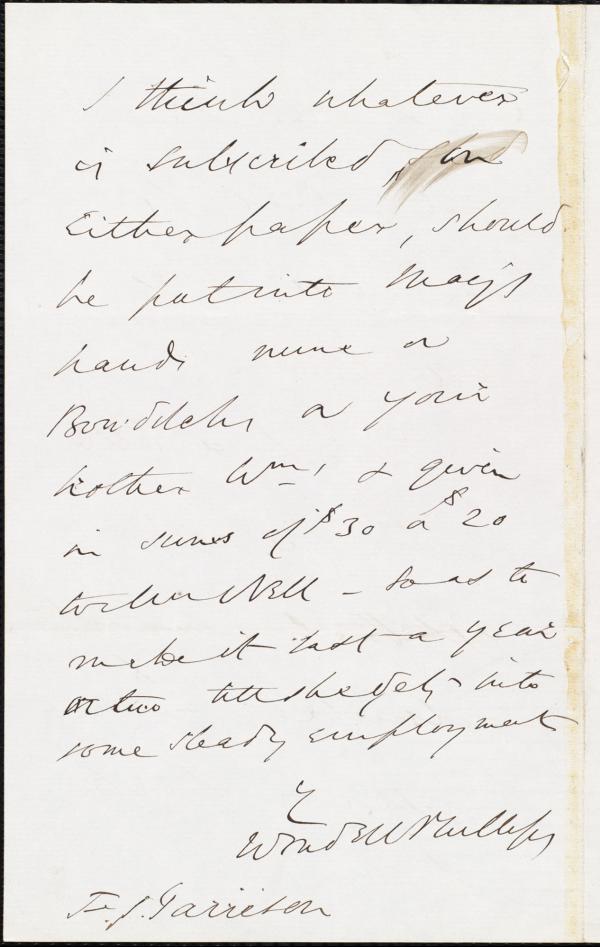 I think whatever
is subscribed, on
either paper, should
be put into May's
hands mine or
Bowditch's or your
brother Wm's & given
in sums of $30 or $20
to Mrs Nell - so as to
make it last a year
or two till she gets into
some steady employment
Y
Wendell Phillips
F. J. Garrison